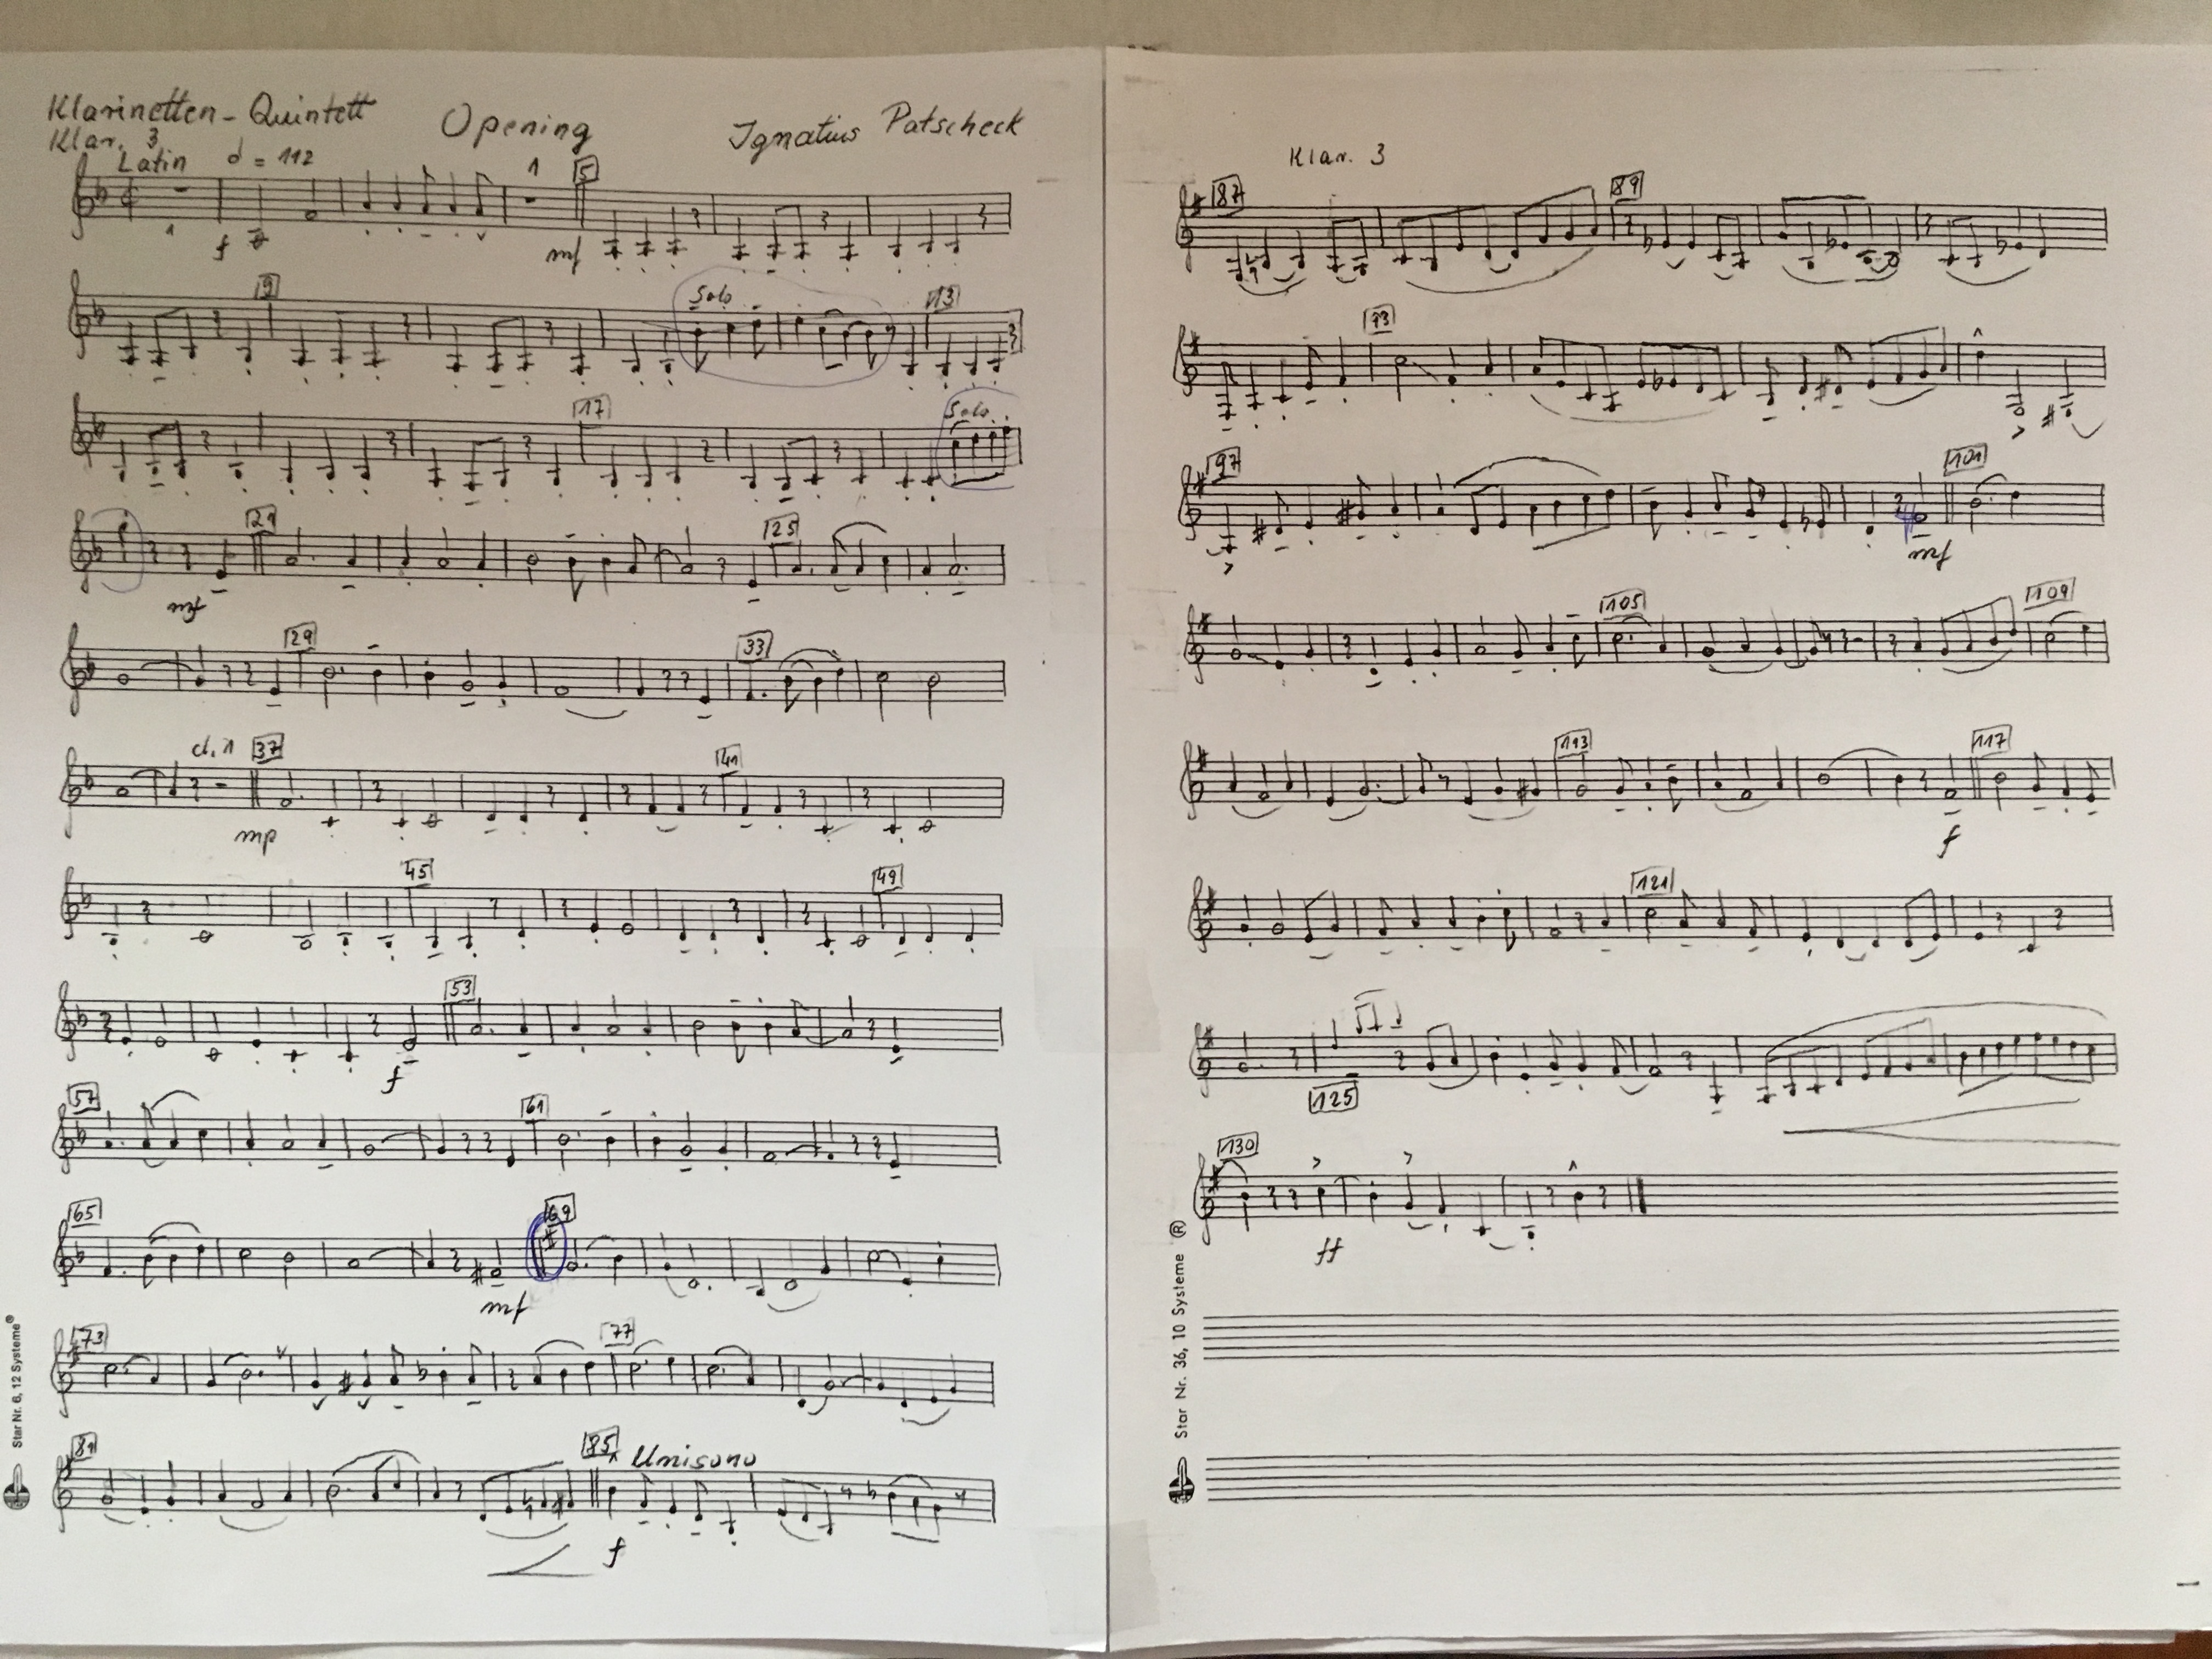 Klarinetten-Quintett
Klar. 3
Opening
Ignatius Patscheck
Latin 𝅗𝅥 = 112
1 1 5
f mf
9 Solo 13
17 Solo
21 25
mf
29 33
cl. 1 37 41
mp
45 49
53
f
57 61
65 69
mf
73 77
81 85 Unisono
f
Star Nr. 6, 12 Systeme®
Klar. 3
87 89
93
97 101
mf
105 109
113 117
f
121
125
130
ff
Star Nr. 36, 10 Systeme ®